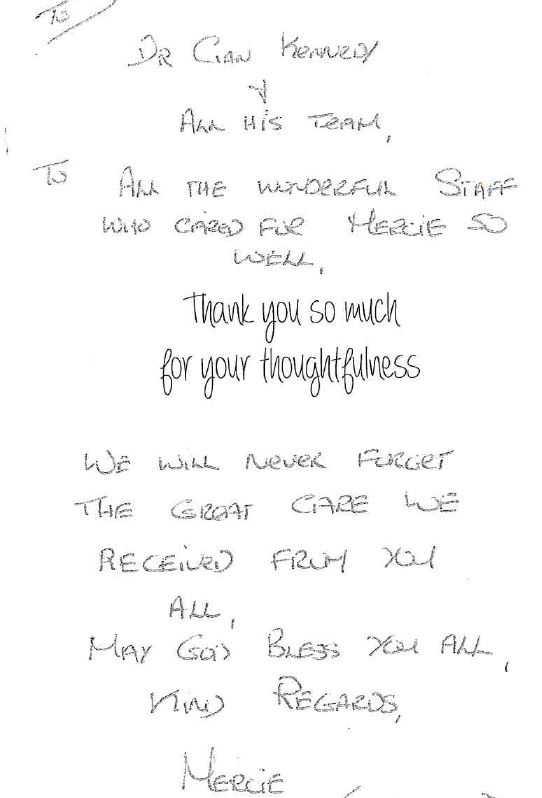 To
Dr Cian Kennedy
&
All His Team,
To All the wonderful Staff
who cared for Mercie so
well,
Thank you so much
for your thoughtfulness
We will never forget
the great care we
received from you
all,
May God Bless you all,
Kind Regards,
Mercie